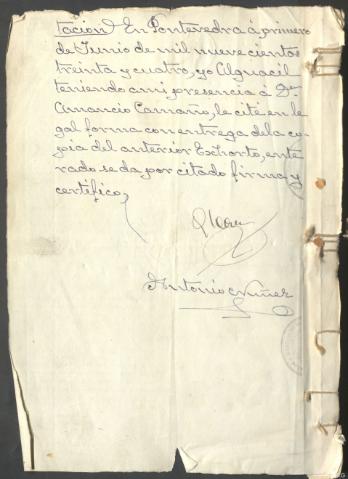 tacion) En Pontevedra á primero
de Junio de mil nuevecientos
treinta y cuatro, yo Alguacil
teniendo ami presencia á Dn
Amancio Camaño, le cité en le-
gal forma con entrega dela co-
pia del anterior Exhorto, ente
rado se da por citado firma y
certifico,
Antonio Nuñez